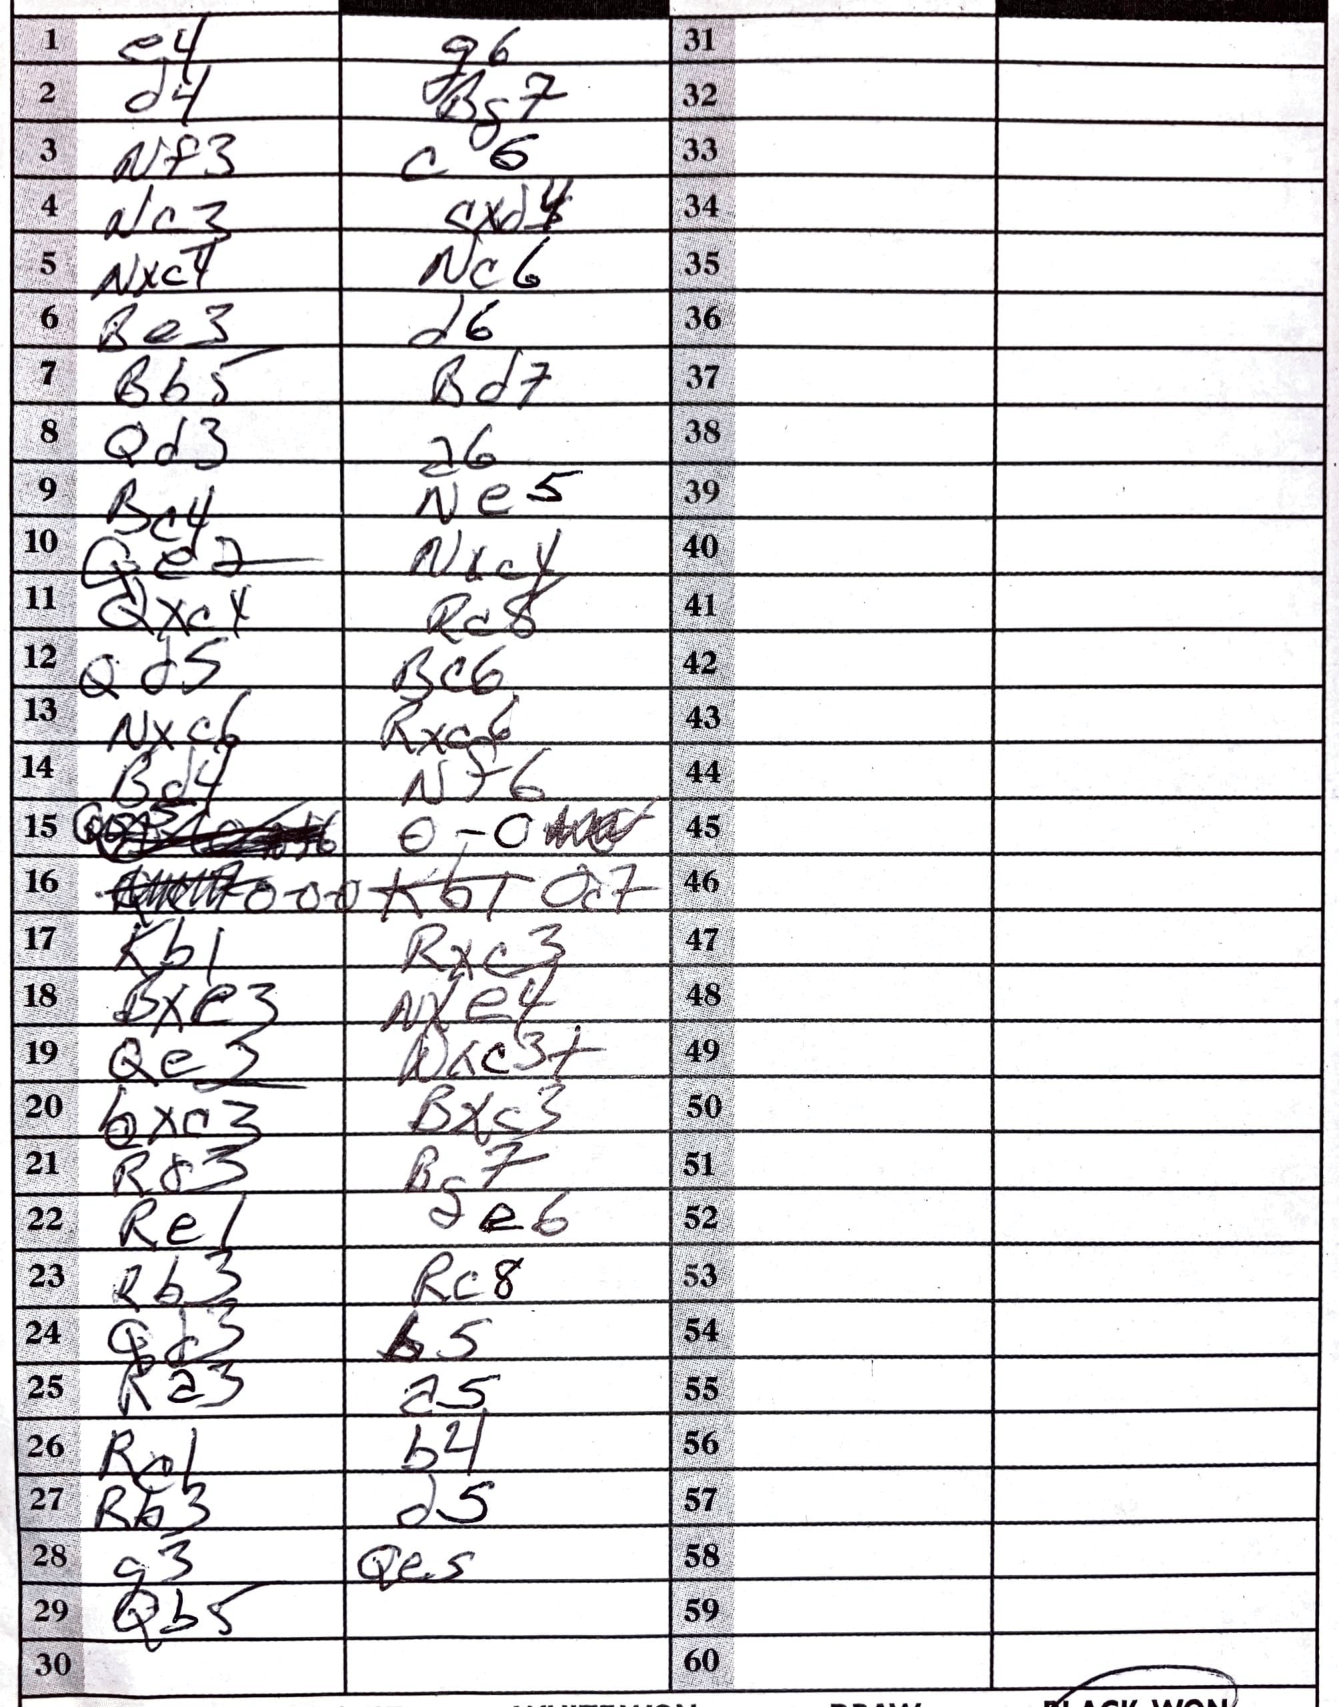 1 e4 g6 31
2 d4 Bg7 32
3 Nf3 c6 33
4 Nc3 cxd4 34
5 Nxc4 Nc6 35
6 Be3 d6 36
7 Bb5 Bd7 37
8 Qd3 a6 38
9 Bc4 Ne5 39
10 Qe2 Nxc4 40
11 Qxc4 Rc8 41
12 Qd5 Bc6 42
13 Nxc6 Rxc6 43
14 Bd4 Nf6 44
15 0-0 45
16 0-0-0 Kb1 Qc7 46
17 Kb1 Rxc3 47
18 Bxe3 Nxe4 48
19 Qe3 Nxc3+ 49
20 bxc3 Bxc3 50
21 Rd3 Bg7 51
22 Re1 e6 52
23 Rb3 Rc8 53
24 Qd3 b5 54
25 Ra3 a5 55
26 Rc1 b4 56
27 Rb3 d5 57
28 g3 Qe5 58
29 Qb5 59
30 60
WHITE WON DRAW BLACK WON